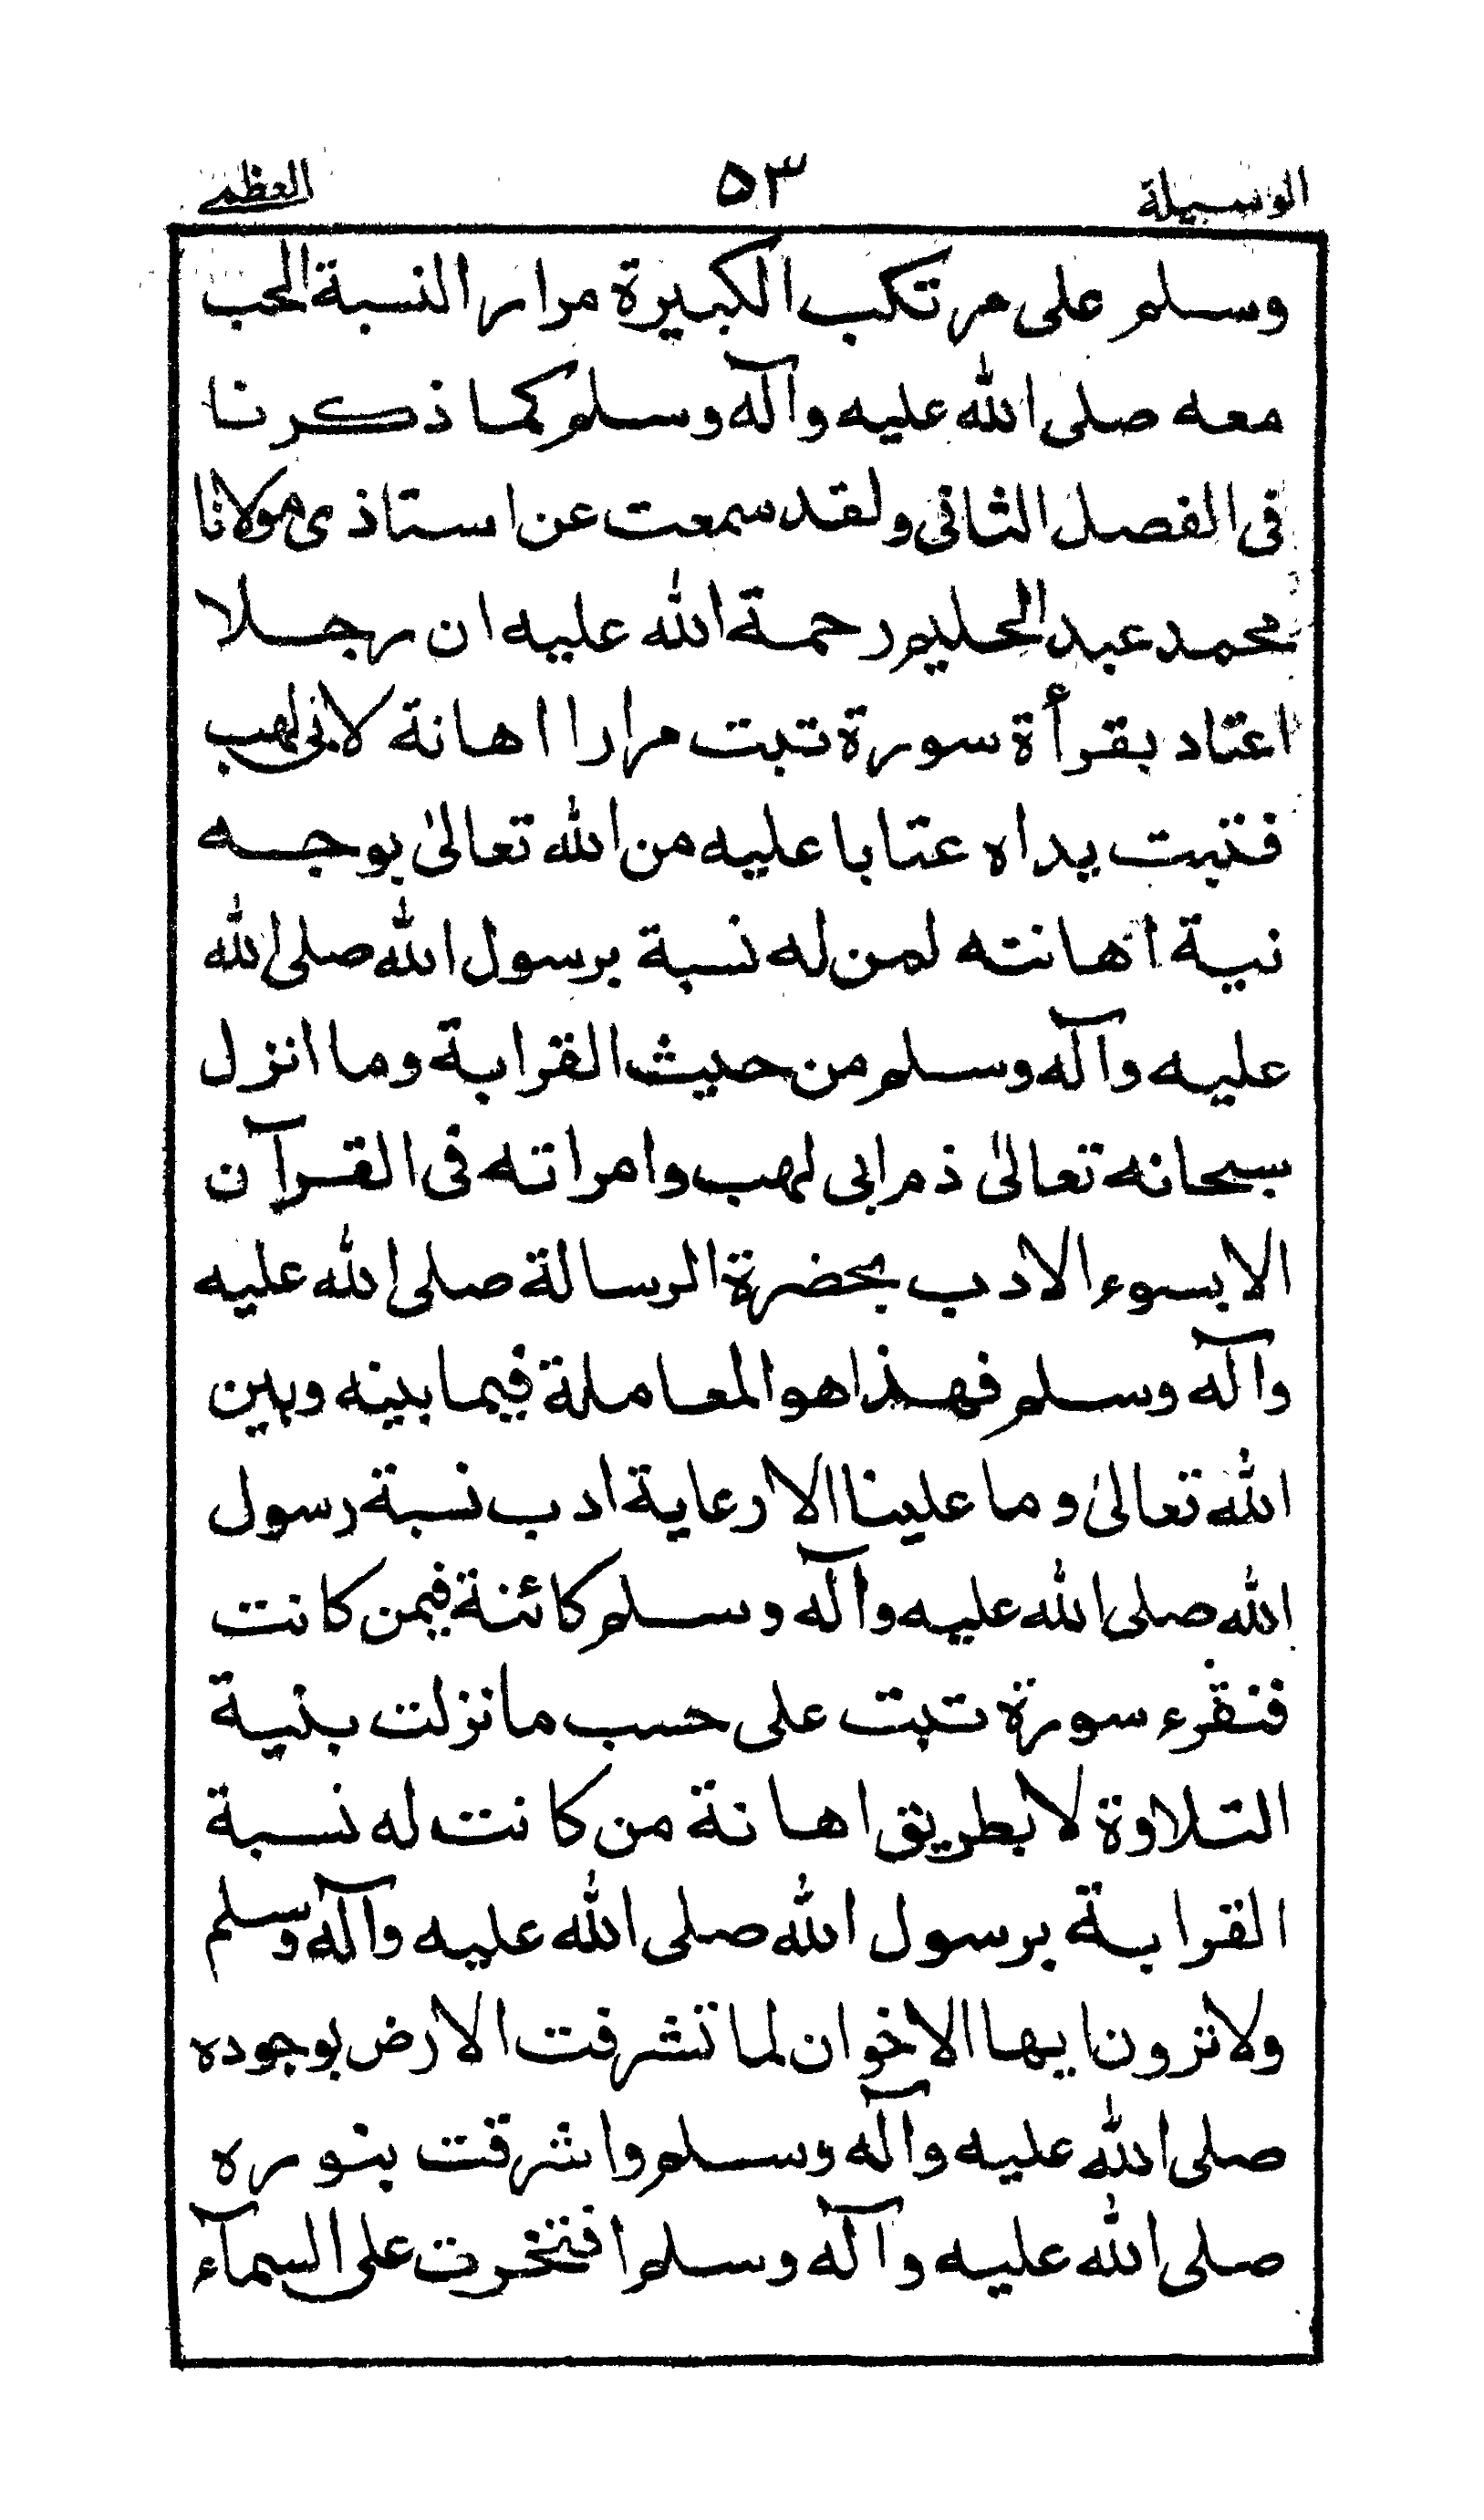 الوسيلة ٥٣ العظمى
وسلم على مرتكب الكبيرة مرارا لنسبة الحب
معه صلى الله عليه وآله وسلم كما ذكرنا
فى الفصل الثانى ولقد سمعت عن استاذى مولانا
محمد عبد الحليم رحمة الله عليه ان رجلا
اعتاد بقرأة سورة تبت مرارا اهانة لابى لهب
فتبت يداه عتابا عليه من الله تعالىٰ بوجه
نية اهانته لمن له نسبة برسول الله صلى الله
عليه وآله وسلم من حيث القرابة وما انزل
سبحانه تعالىٰ ذم ابى لهب وامراته فى القرآن
الا بسوء الادب بحضرة الرسالة صلى الله عليه
وآله وسلم فهذا هو المعاملة فيما بينه وبين
الله تعالىٰ وما علينا الا رعاية ادب نسبة رسول
الله صلى الله عليه وآله وسلم كائنة فيمن كانت
فنقرء سورة تبت على حسب ما نزلت بنية
التلاوة لا بطريق اهانة من كانت له نسبة
القرابة برسول الله صلى الله عليه وآله وسلم
ولا ترون ايها الاخوان لما تشرفت الارض بوجوده
صلى الله عليه وآله وسلم واشرقت بنوره
صلى الله عليه وآله وسلم افتخرت على السمآء